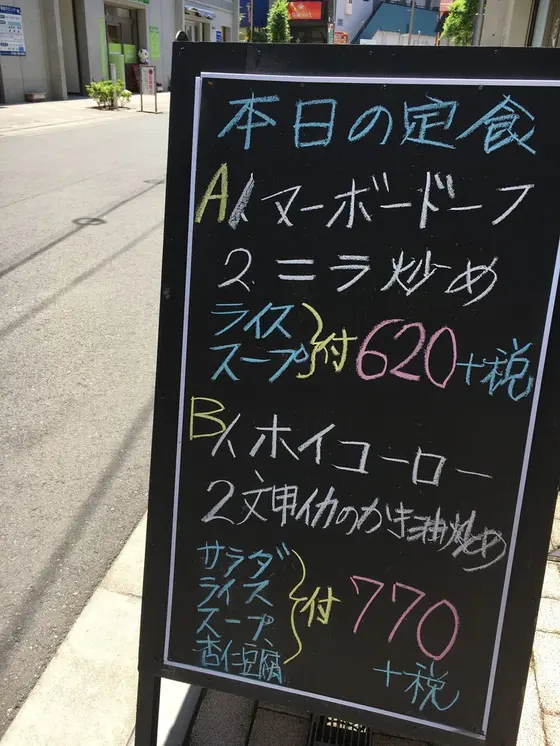 本日の定食
A 1、マーボードーフ
2、ニラ炒め
ライス
スープ 付 620+税
B 1、ホイコーロー
2 文甲イカのかき油炒め
サラダ
ライス
スープ
杏仁豆腐
付 770
+税